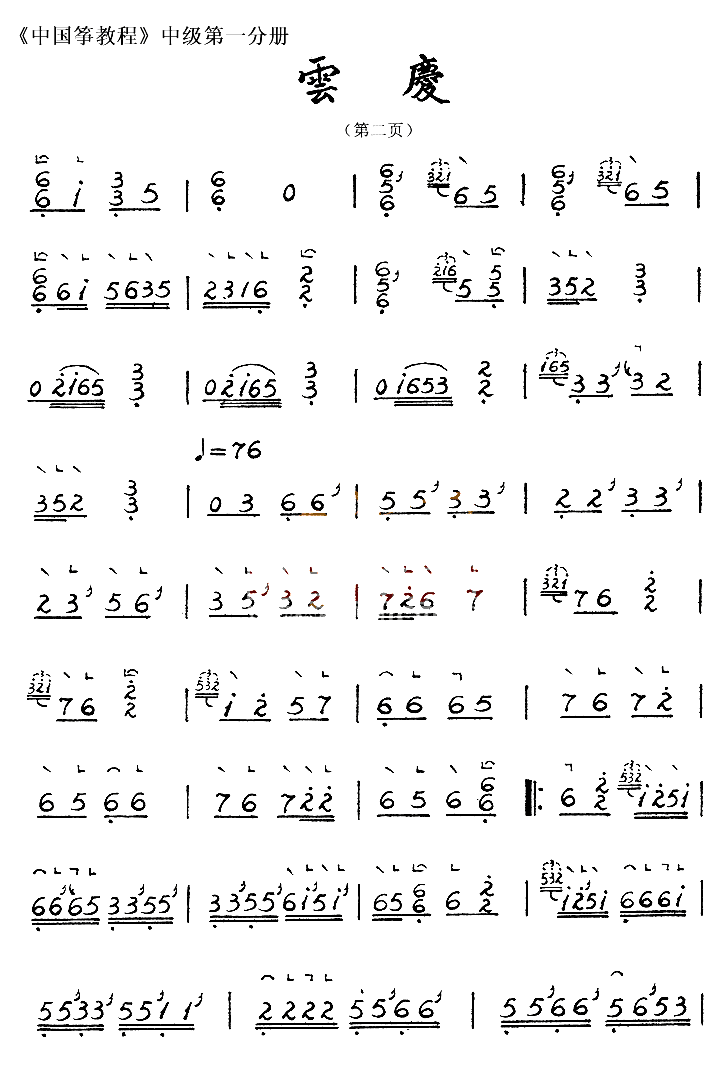 《中国筝教程》中级第一分册
雲慶
（第二页）
6 6 i 3 3 5 | 6 6 0 | 6 5 6 321 6 5 | 6 5 6 321 6 5 |
6 6 6 i 5 6 3 5 | 2 3 1 6 2 2 | 6 5 6 216 5 5 5 | 3 5 2 3 3 |
0 2 i 6 5 3 3 | 0 2 i 6 5 3 3 | 0 i 6 5 3 2 2 | i65 3 3 3 2 |
♩=76
3 5 2 3 3 | 0 3 6 6 | 5 5 3 3 | 2 2 3 3 |
2 3 5 6 | 3 5 3 2 | 7 2 6 7 | 321 7 6 2 2 |
321 7 6 2 2 | 532 i 2 5 7 | 6 6 6 5 | 7 6 7 2 |
6 5 6 6 | 7 6 7 2 2 | 6 5 6 6 6 | 6 2 2 532 i 2 5 i |
6 6 6 5 3 3 5 5 | 3 3 5 5 6 i 5 i | 6 5 6 6 6 2 2 | 532 i 2 5 i 6 6 6 i |
5 5 3 3 5 5 1 1 | 2 2 2 2 5 5 6 6 | 5 5 6 6 5 6 5 3 |